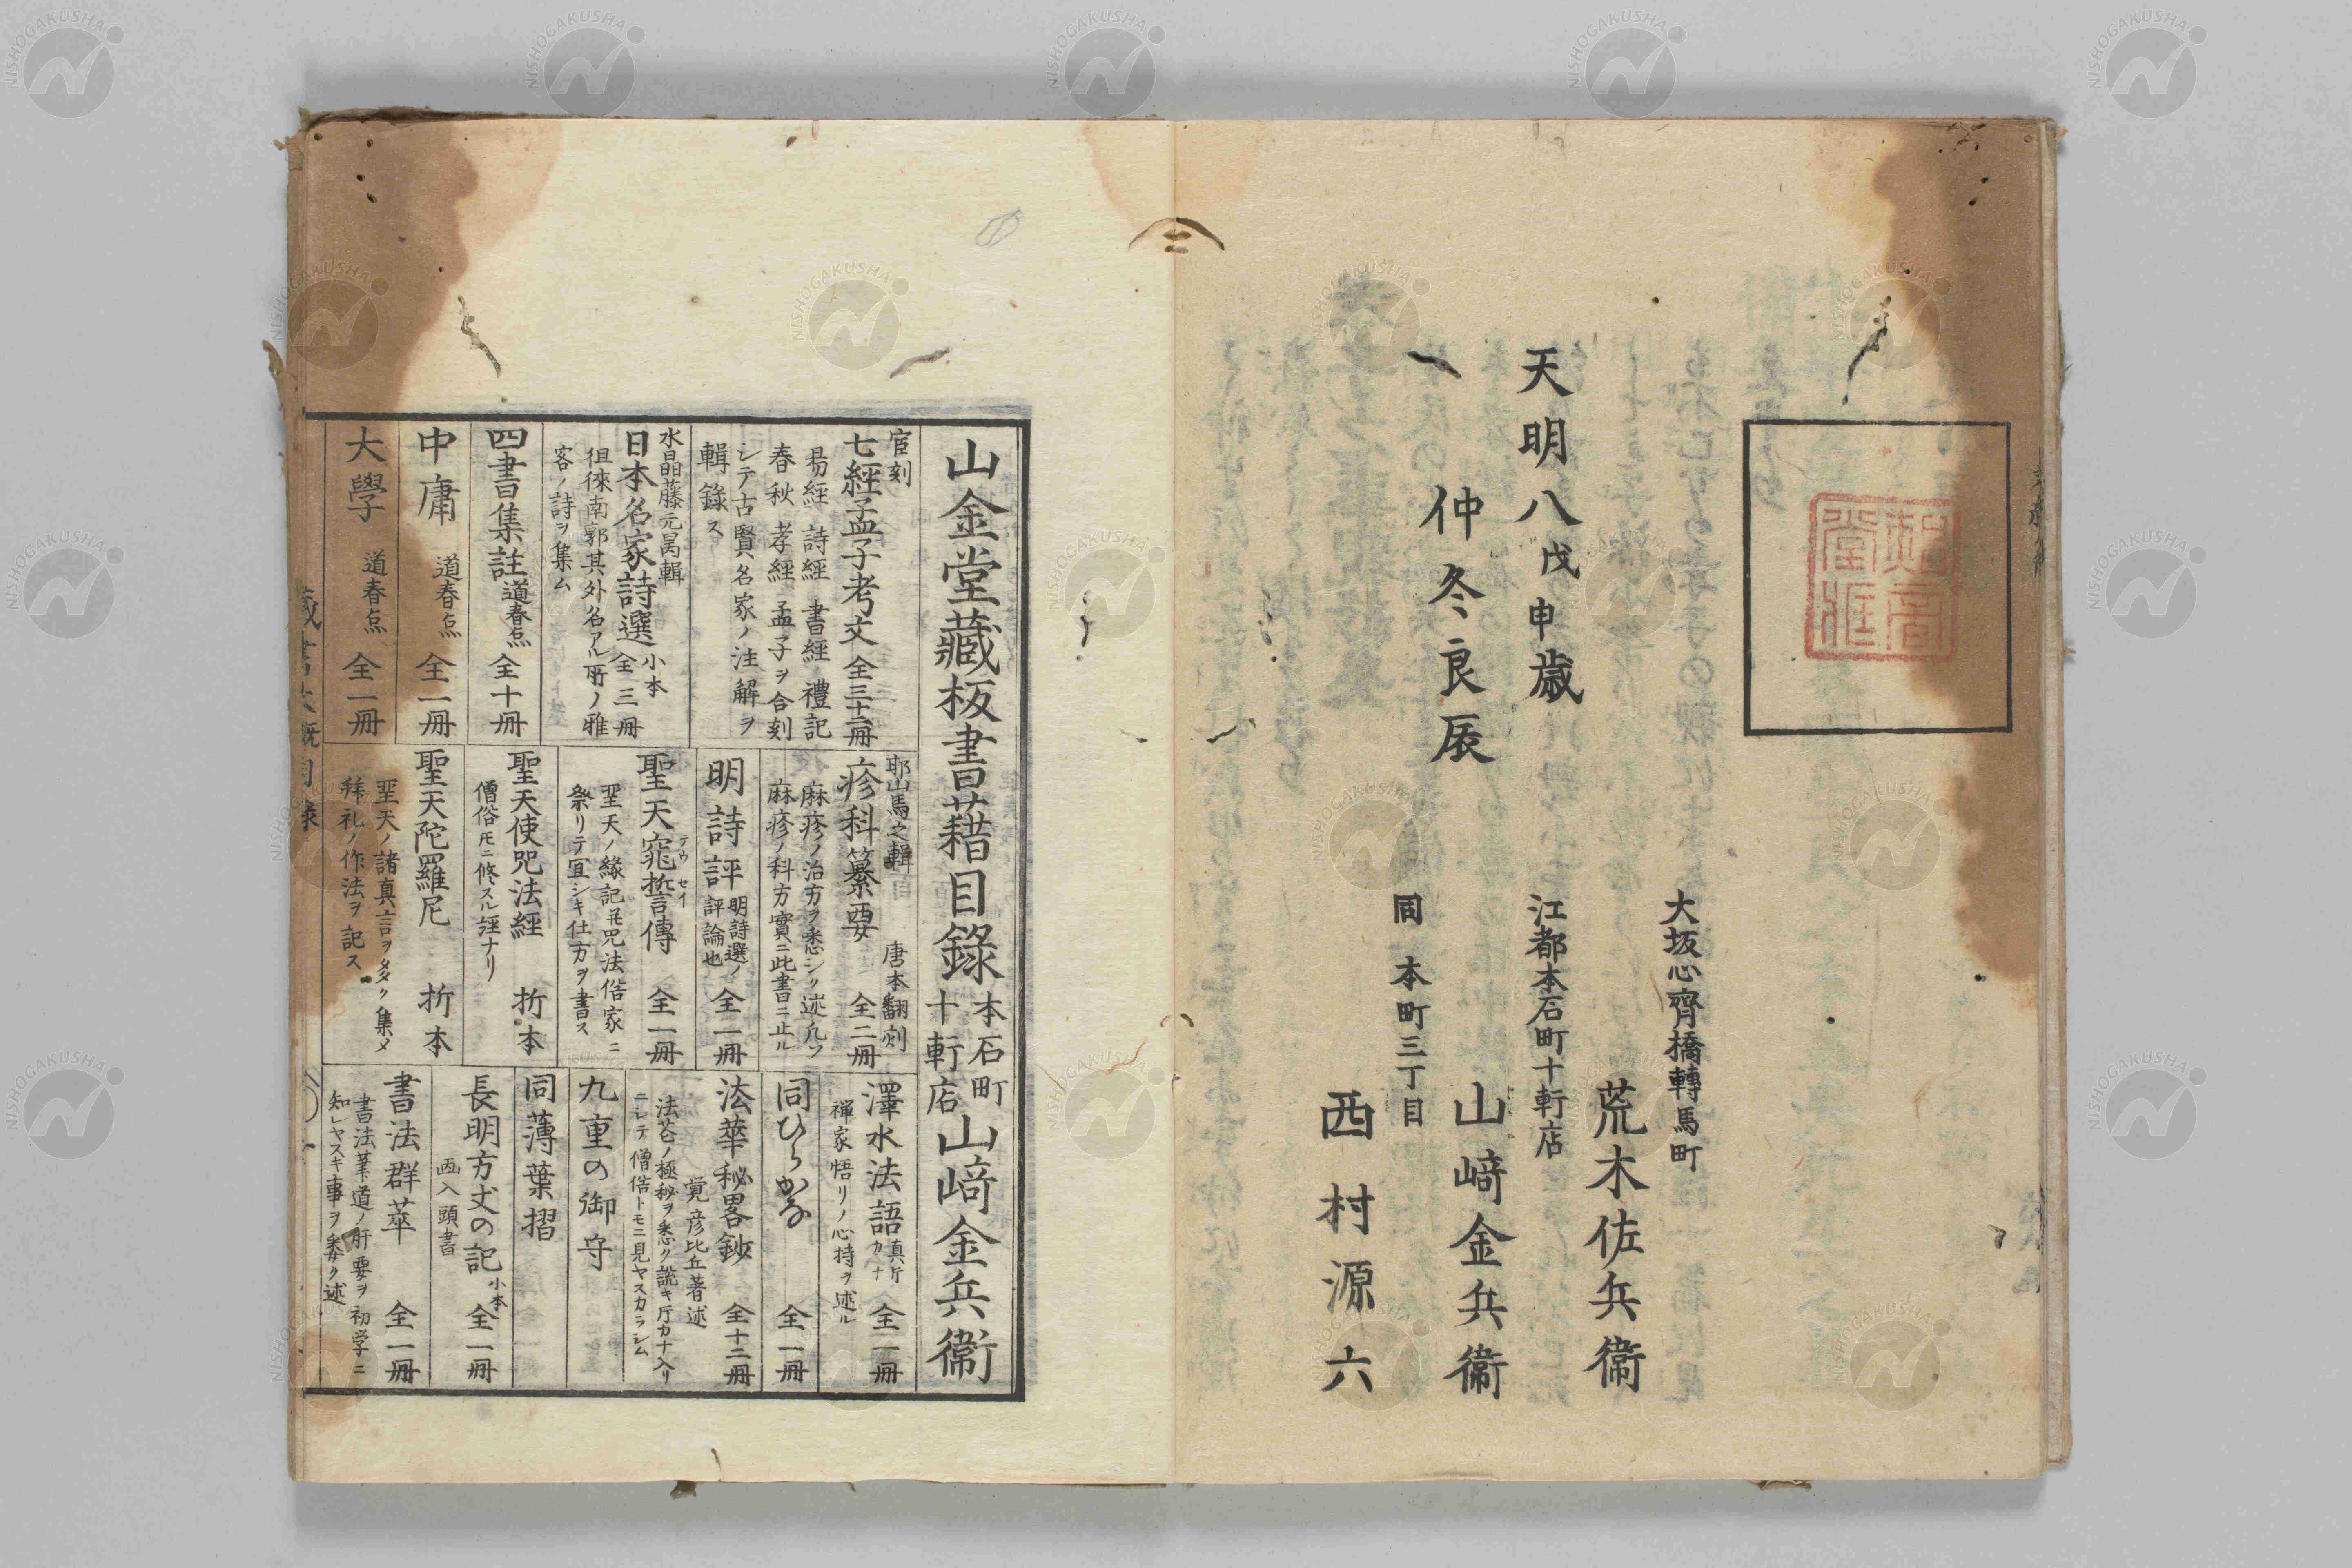 天明八戊申歳
仲冬良辰
大坂心齊橋轉馬町
荒木佐兵衞
江都本石町十軒店
山﨑金兵衞
同本町三丁目
西村源六
山金堂藏板書藉目錄 本石町十軒店 山﨑金兵衞
官刻
七經孟子考文 全三十二冊
易經 詩經 書經 禮記
春秋 孝經 孟子ヲ合刻
シテ古賢名家ノ注解ヲ
輯錄ス
水晶藤元昺輯
日本名家詩選 小本 全三冊
徂徠南郭其外名アル所ノ雅
客ノ詩ヲ集ム
四書集註 道春点 全十冊
中庸 道春点 全一冊
大學 道春点 全一冊
耶山馬之輯
唐本翻刻
疹科纂要 全二冊
麻疹ノ治方ヲ悉シク述凡ソ
麻疹ノ科方實ニ此書ニ止ル
明詩評 明詩選ノ評論也 全一冊
聖天窕誓傳 全一冊
テウ セイ
聖天ノ緣記并咒法俗家ニ
祭リテ宜シキ仕方ヲ書ス
聖天使咒法經 折本
僧俗トモニ修スル經ナリ
聖天陀羅尼 折本
聖天ノ諸真言ヲ多ク集メ
拜礼ノ作法ヲ記ス
澤水法語 真片カナ 全一冊
禪家悟リノ心持ヲ述ル
同ひらかな 全一冊
法華秘畧鈔 全十二冊
覚彦比丘著述
法花ノ極秘ヲ悉ク説キ片カナ入リ
ニシテ僧俗トモニ見ヤスカラシム
九重の御守
同薄葉摺
長明方丈の記 小本 全一冊
画入頭書
書法群萃 全一冊
書法筆道ノ肝要ヲ初学ニ
知レヤスキ事ヲ委ク述
NISHOGAKUSHA